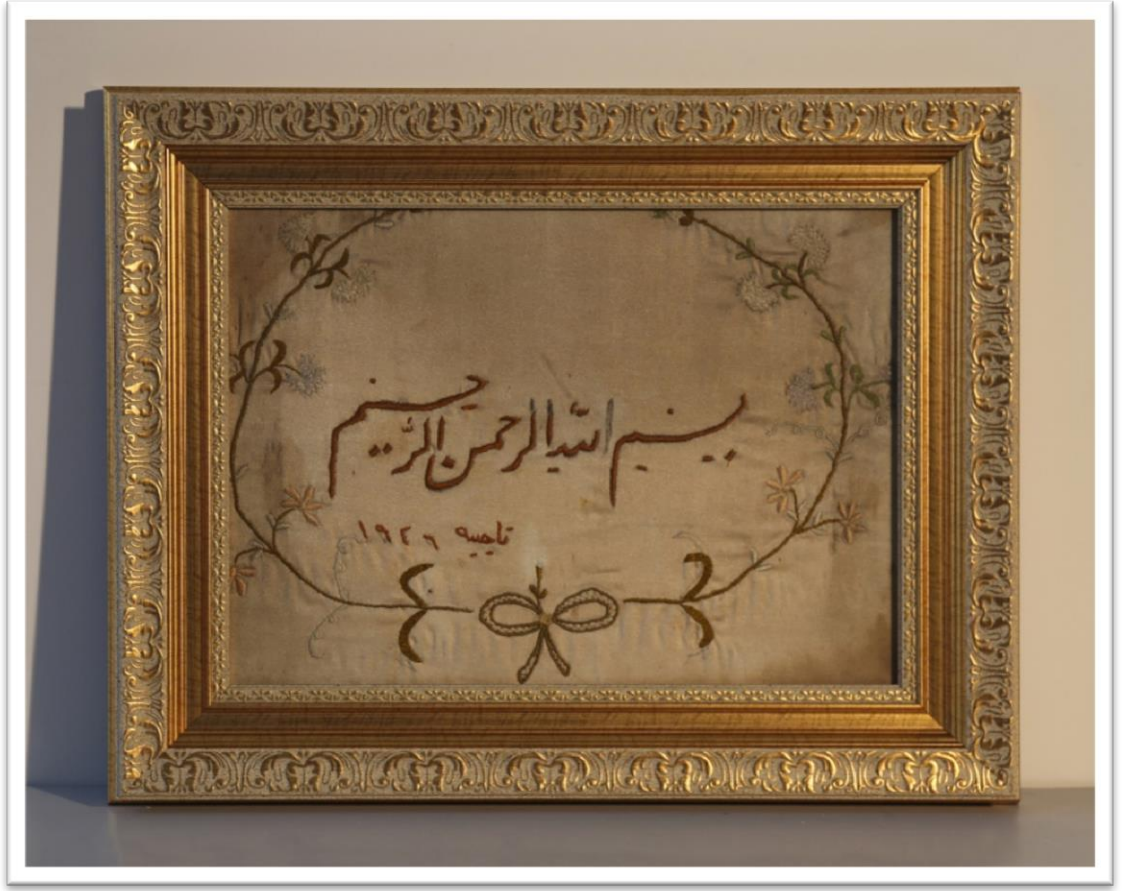 بسم الله الرحمن الرحيم
ناجيه ١٩٤٦